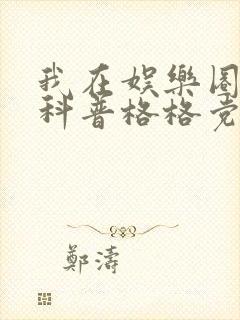 我在娱樂圈
科普格格党
鄭濤